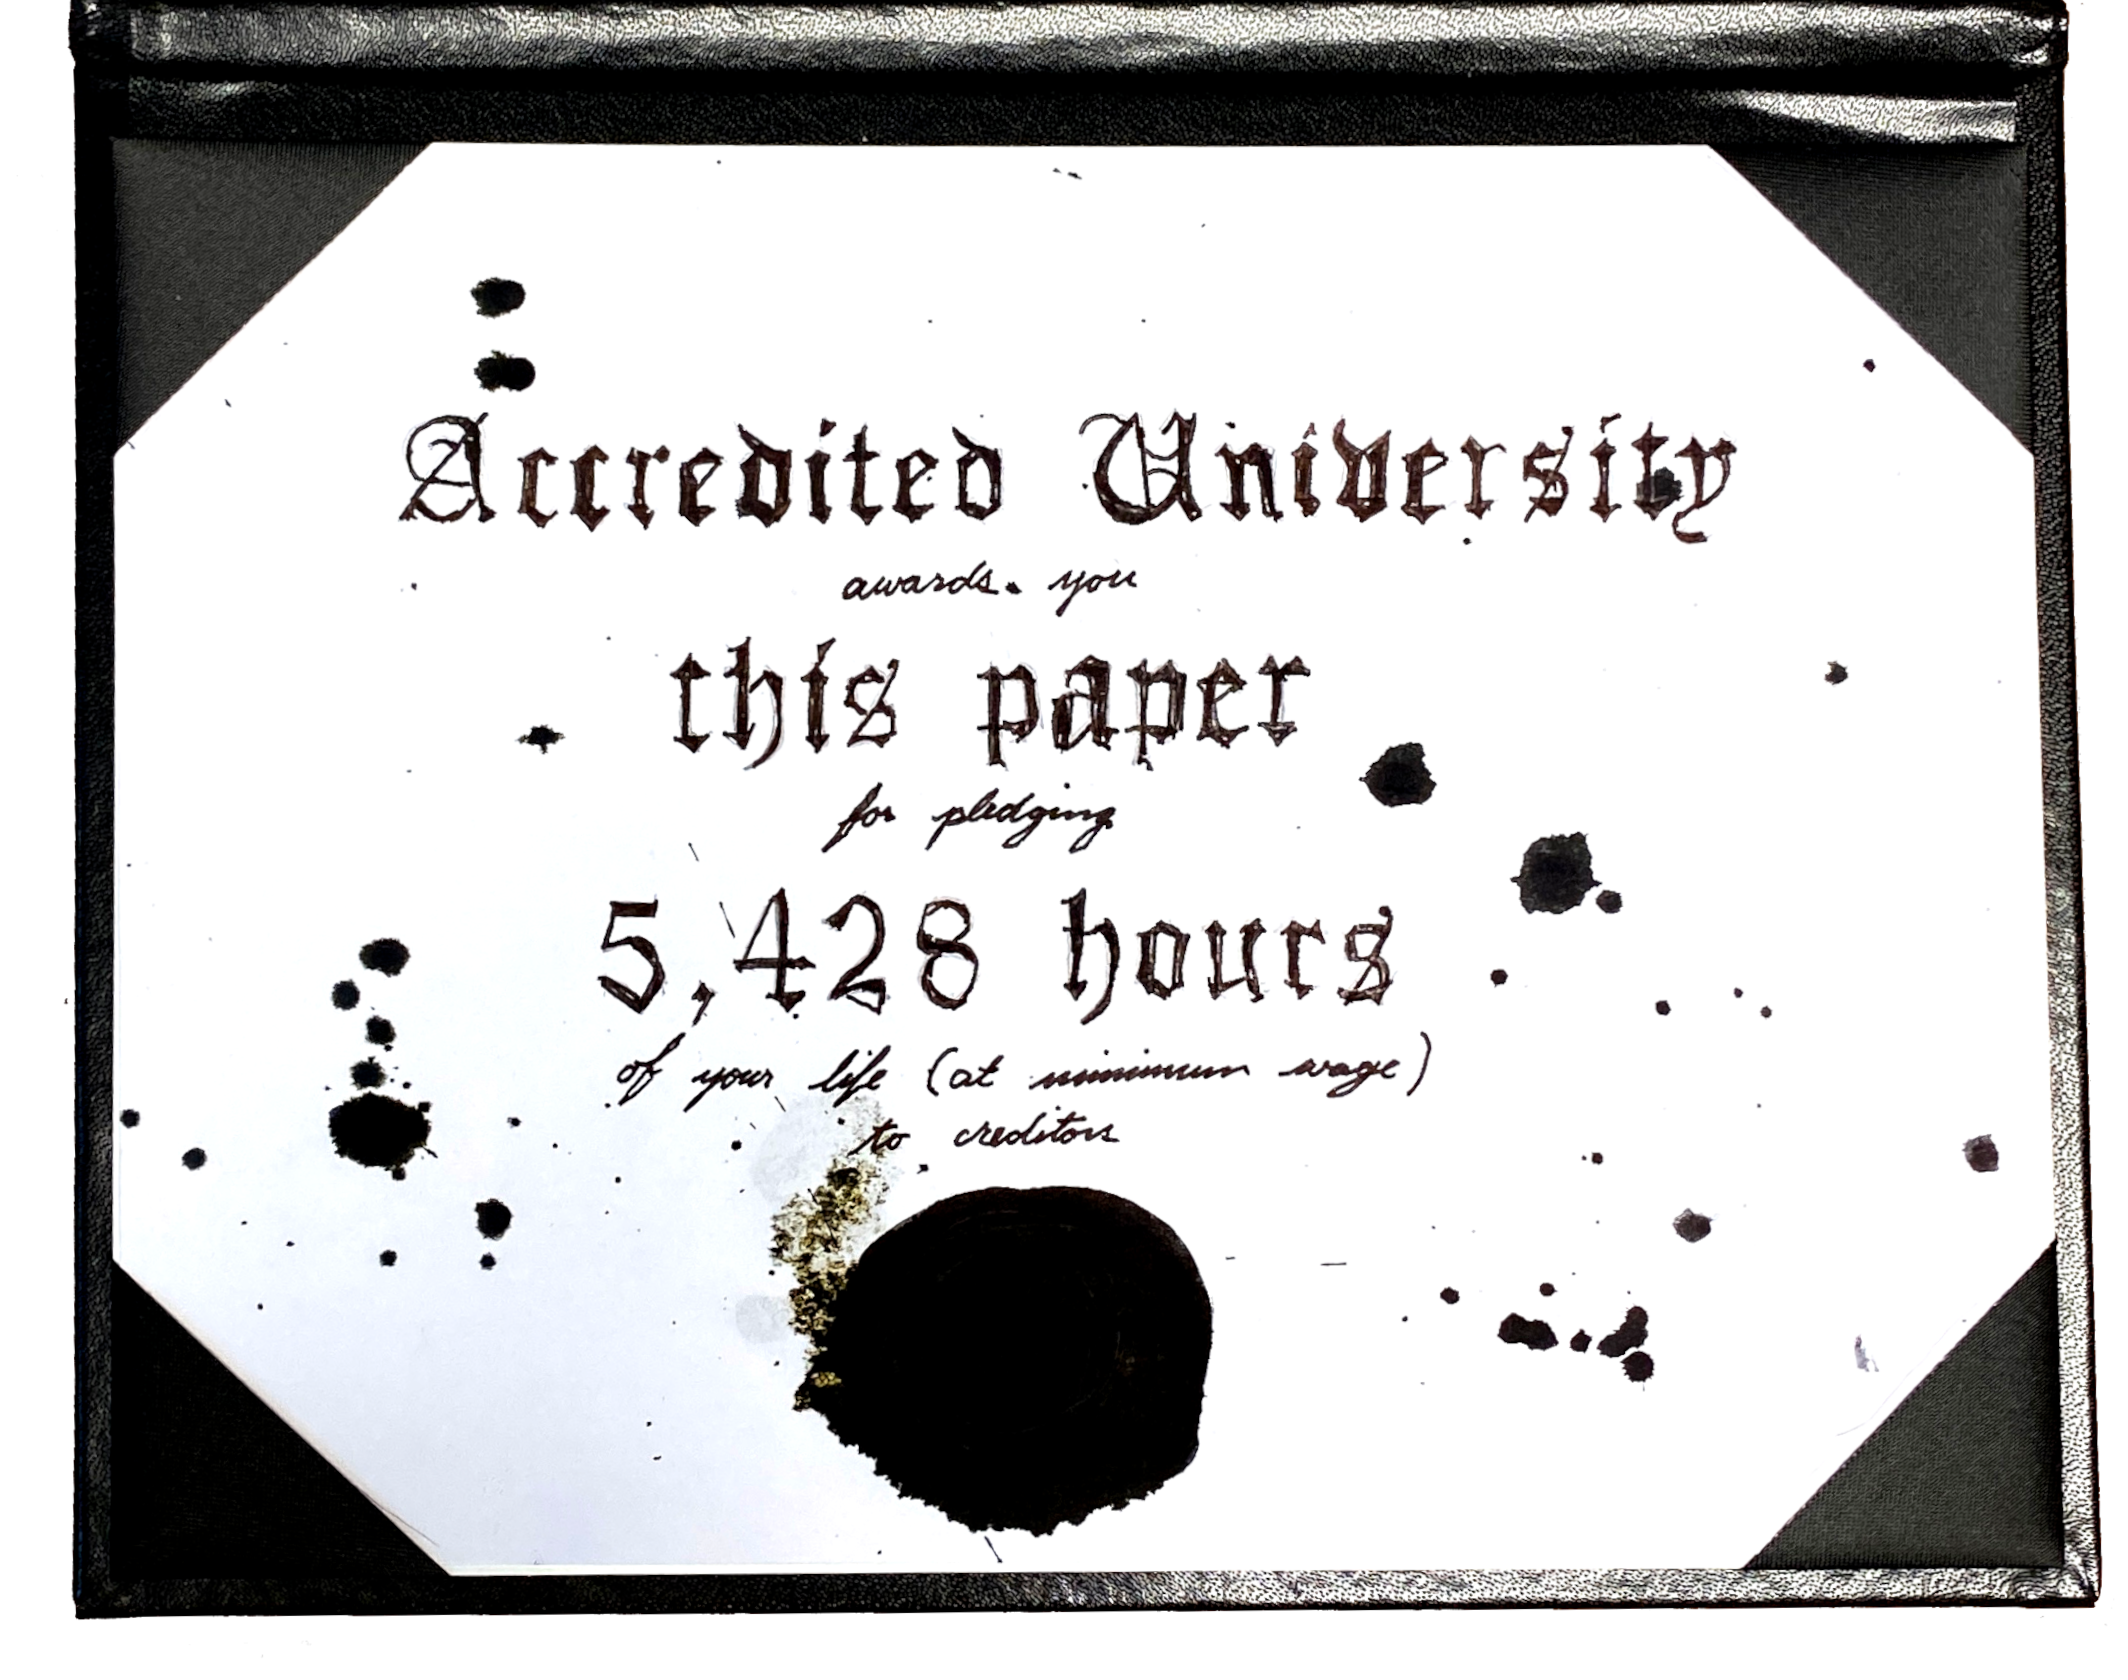 Accredited University
awards. you
this paper
for pledging
5,428 hours
of your life (at minimum wage)
to creditors